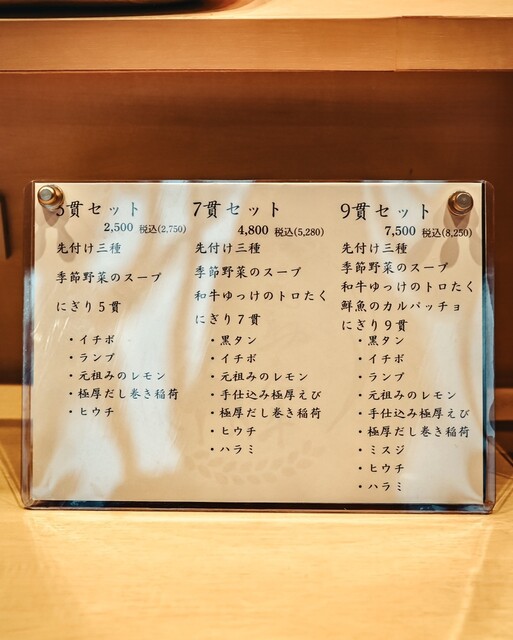 5貫セット
2,500 税込(2,750)
先付け三種
季節野菜のスープ
にぎり5貫
・イチボ
・ランプ
・元祖みのレモン
・極厚だし巻き稲荷
・ヒウチ
7貫セット
4,800 税込(5,280)
先付け三種
季節野菜のスープ
和牛ゆっけのトロたく
にぎり7貫
・黒タン
・イチボ
・元祖みのレモン
・手仕込み極厚えび
・極厚だし巻き稲荷
・ヒウチ
・ハラミ
9貫セット
7,500 税込(8,250)
先付け三種
季節野菜のスープ
和牛ゆっけのトロたく
鮮魚のカルパッチョ
にぎり9貫
・黒タン
・イチボ
・ランプ
・元祖みのレモン
・手仕込み極厚えび
・極厚だし巻き稲荷
・ミスジ
・ヒウチ
・ハラミ